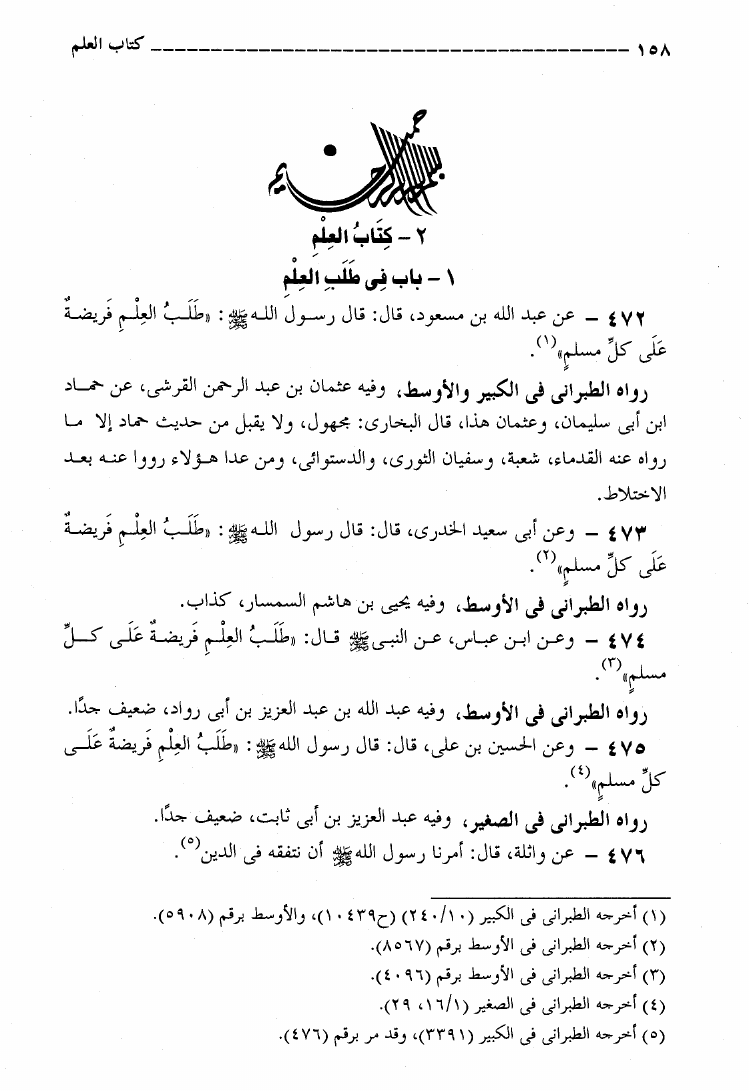 ١٥٨ ـــــــــــــــــــــــــــــــــــــــــــــــــ كتاب العلم
بسم الله الرحمن الرحيم
٢ - كِتَابُ العِلْمِ
١ - باب فِى طَلَبِ العِلْمِ
٤٧٢ – عن عبد الله بن مسعود، قال: قال رسول اللهﷺ: «طَلَبُ العِلْمِ فَرِيضةٌ
عَلَى كلِّ مسلمٍ»(١).
رواه الطبرانى فى الكبير والأوسط، وفيه عثمان بن عبد الرحمن القرشى، عن حماد
ابن أبى سليمان، وعثمان هذا، قال البخارى: مجهول، ولا يقبل من حديث حماد إلا ما
رواه عنه القدماء، شعبة، وسفيان الثورى، والدستوائى، ومن عدا هؤلاء رووا عنه بعد
الاختلاط.
٤٧٣ – وعن أبى سعيد الخدرى، قال: قال رسول اللهﷺ: «طَلَبُ العِلْمِ فَرِيضةٌ
عَلَى كلِّ مسلمٍ»(٢).
رواه الطبرانى فى الأوسط، وفيه يحيى بن هاشم السمسار، كذاب.
٤٧٤ – وعن ابن عباس، عن النبىﷺ قال: «طَلَبُ العِلْمِ فَرِيضةٌ عَلَى كلِّ
مسلمٍ»(٣).
رواه الطبرانى فى الأوسط، وفيه عبد الله بن عبد العزيز بن أبى رواد، ضعيف جدًا.
٤٧٥ – وعن الحسين بن على، قال: قال رسول اللهﷺ: «طَلَبُ العِلْمِ فَرِيضةٌ عَلَى
كلِّ مسلمٍ»(٤).
رواه الطبرانى فى الصغير، وفيه عبد العزيز بن أبى ثابت، ضعيف جدًا.
٤٧٦ – عن واثلة، قال: أمرنا رسول اللهﷺ أن نتفقه فى الدين(٥).
(١) أخرجه الطبرانى فى الكبير (٢٤٠/١٠) (ح١٠٤٣٩)، والأوسط برقم (٥٩٠٨).
(٢) أخرجه الطبرانى فى الأوسط برقم (٨٥٦٧).
(٣) أخرجه الطبرانى فى الأوسط برقم (٤٠٩٦).
(٤) أخرجه الطبرانى فى الصغير (١٦/١، ٢٩).
(٥) أخرجه الطبرانى فى الكبير (٣٣٩١)، وقد مر برقم (٤٧٦).